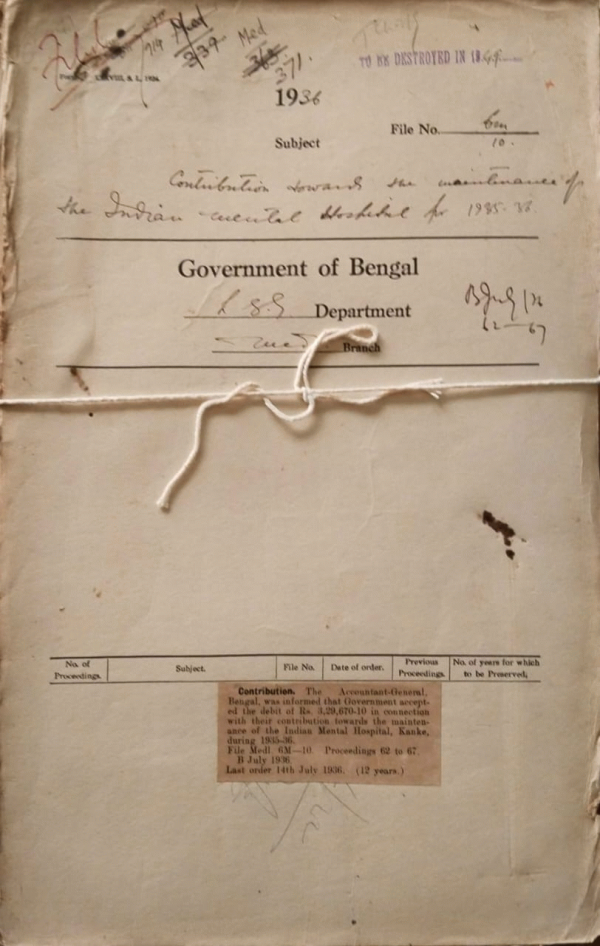 719 Med 3/39 Med 371.
TO BE DESTROYED IN 1949
1936
File No. 6m
10.
Subject
Contribution towards the maintenance of
the Indian mental Hospital for 1935-36.
Government of Bengal
L. S. G Department
B July/36
62-67
Med Branch
No. of Proceedings. Subject. File No. Date of order. Previous Proceedings. No. of years for which to be Preserved.
Contribution. The Accountant-General,
Bengal, was informed that Government accept-
ed the debit of Rs. 3,29,670-10 in connection
with their contribution towards the mainten-
ance of the Indian Mental Hospital, Kanke,
during 1935-36.
File Medl. 6M—10. Proceedings 62 to 67.
B July 1936.
Last order 14th July 1936. (12 years.)